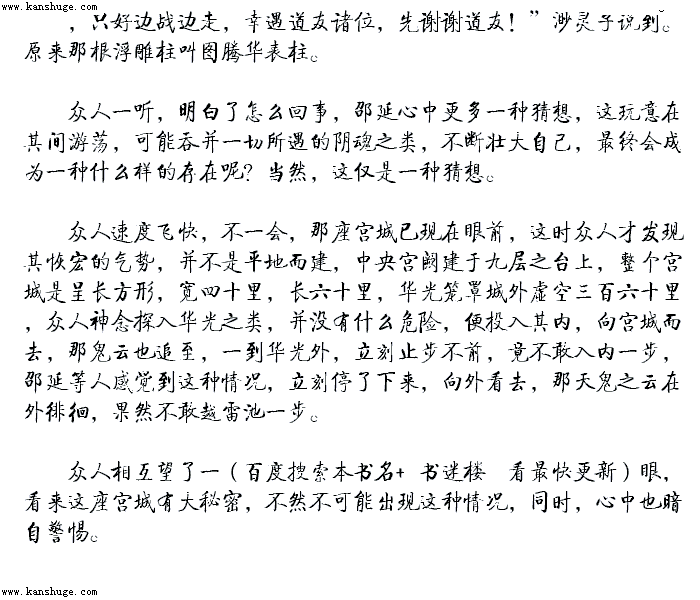 www.kanshuge.com
，只好边战边走，幸遇道友诸位，先谢谢道友！”渺灵子说到。
原来那根浮雕柱叫图腾华表柱。
众人一听，明白了怎么回事，邵延心中更多一种猜想，这玩意在
其间游荡，可能吞并一切所遇的阴魂之类，不断壮大自己，最终会成
为一种什么样的存在呢？当然，这仅是一种猜想。
众人速度飞快，不一会，那座宫城已现在眼前，这时众人才发现
其恢宏的气势，并不是平地而建，中央宫阙建于九层之台上，整个宫
城是呈长方形，宽四十里，长六十里，华光笼罩城外虚空三百六十里
，众人神念探入华光之类，并没有什么危险，便投入其内，向宫城而
去，那鬼云也追至，一到华光外，立刻止步不前，竟不敢入内一步，
邵延等人感觉到这种情况，立刻停了下来，向外看去，那天鬼之云在
外徘徊，果然不敢越雷池一步。
众人相互望了一（百度搜索本书名+ 书迷楼 看最快更新）眼，
看来这座宫城有大秘密，不然不可能出现这种情况，同时，心中也暗
自警惕。
www.kanshuge.com